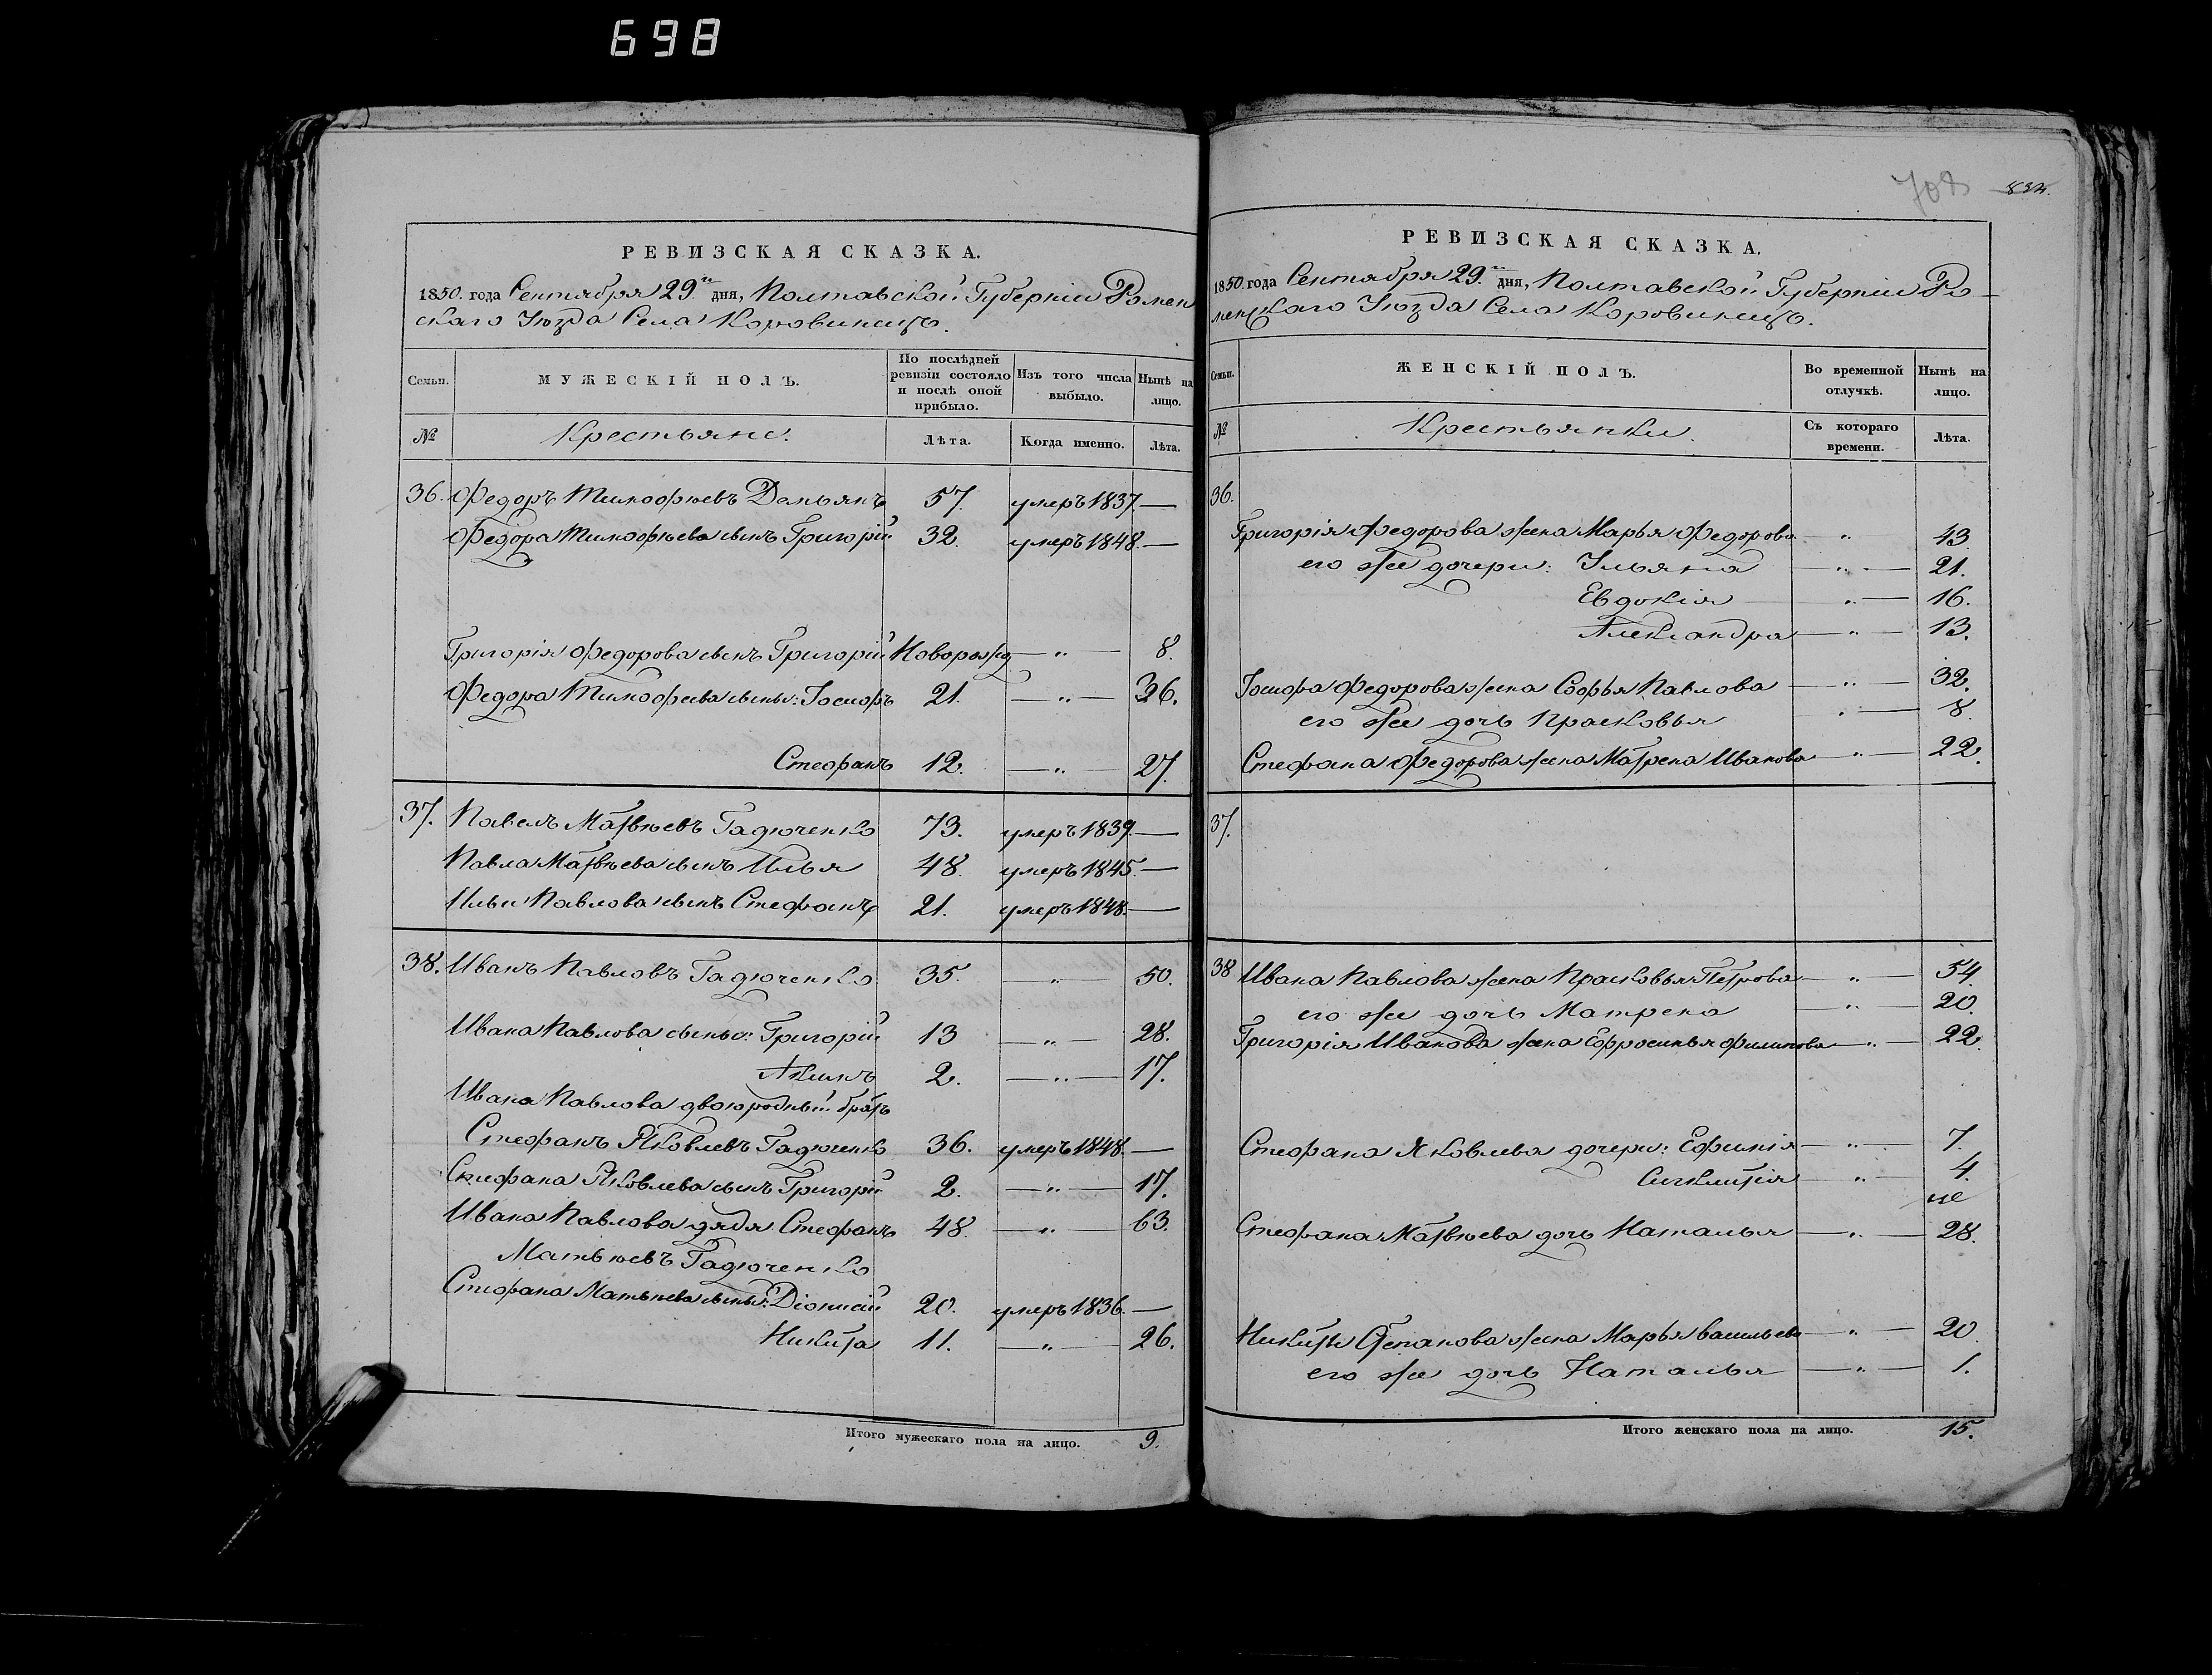 698
РЕВИЗСКАЯ СКАЗКА.
1850. года Сентября 29.го дня, Полтавской Губерніи Ромен
скаго Уѣзда Села Коровинецъ.
Семьи. МУЖЕСКІЙ ПОЛЪ. По послѣдней ревизіи состояло и послѣ оной прибыло. Изъ того числа выбыло. Нынѣ на лицо.
№ Крестьяне. Лѣта. Когда именно. Лѣта.
36. Федоръ Тимофѣевъ Демьянъ 57. умеръ 1837. —
Федора Тимофѣева сынъ Григорій 32. умеръ 1848. —
Григорія Федорова сынъ Григорій Новорожд — „ — 8.
Федора Тимофеева сыны: Іосифъ 21. — „ — 36.
Стефанъ 12. — „ — 27.
37. Павелъ Матвѣевъ Гадюченко 73. умеръ 1839. —
Павла Матвѣева сынъ Илья 48. умеръ 1845. —
Ильи Павлова сынъ Стефанъ 21. умеръ 1848. —
38. Иванъ Павловъ Гадюченко 35. — „ — 50.
Ивана Павлова сыны: Григорій 13 — „ — 28.
Акимъ 2. — „ — 17.
Ивана Павлова двоюродный братъ
Стефанъ Яковлевъ Гадюченко 36. умеръ 1848. —
Стефана Яковлева сынъ Григорій 2. — „ — 17.
Ивана Павлова дядя Стефанъ 48. — „ — 63.
Матвѣевъ Гадюченко
Стефана Матвѣева сыны: Діонисій 20. умеръ 1836. —
Никита 11. — „ — 26.
Итого мужескаго пола на лицо. 9.
708 834.
РЕВИЗСКАЯ СКАЗКА.
1850. года Сентября 29.го дня, Полтавской Губерніи Ро-
менскаго Уѣзда Села Коровинецъ.
Семьи. ЖЕНСКІЙ ПОЛЪ. Во временной отлучкѣ. Нынѣ на лицо.
№ Крестьянки. Съ котораго времени. Лѣта.
36.
Григорія Федорова жена Марья Федорова — „ — 43.
его же дочери: Ульяна — „ — 21.
Евдокія — „ — 16.
Александра — „ — 13.
Іосифа Федорова жена Софья Павлова — „ — 32.
его же дочь Прасковья — „ — 8.
Стефана Федорова жена Матрена Иванова — „ — 22.
37.
38 Ивана Павлова жена Прасковья Петрова — „ — 54.
его же дочь Матрена — „ — 20.
Григорія Иванова жена Ефросинья Филипова — „ — 22.
Стефана Яковлева дочери: Ефимія — „ — 7.
Сиклитія — „ — 4.
Стефана Матвѣева дочь Наталья — „ — 28.
Никиты Степанова жена Марья Васильева — „ — 20.
его же дочь Наталья — „ — 1.
Итого женскаго пола на лицо. 15.